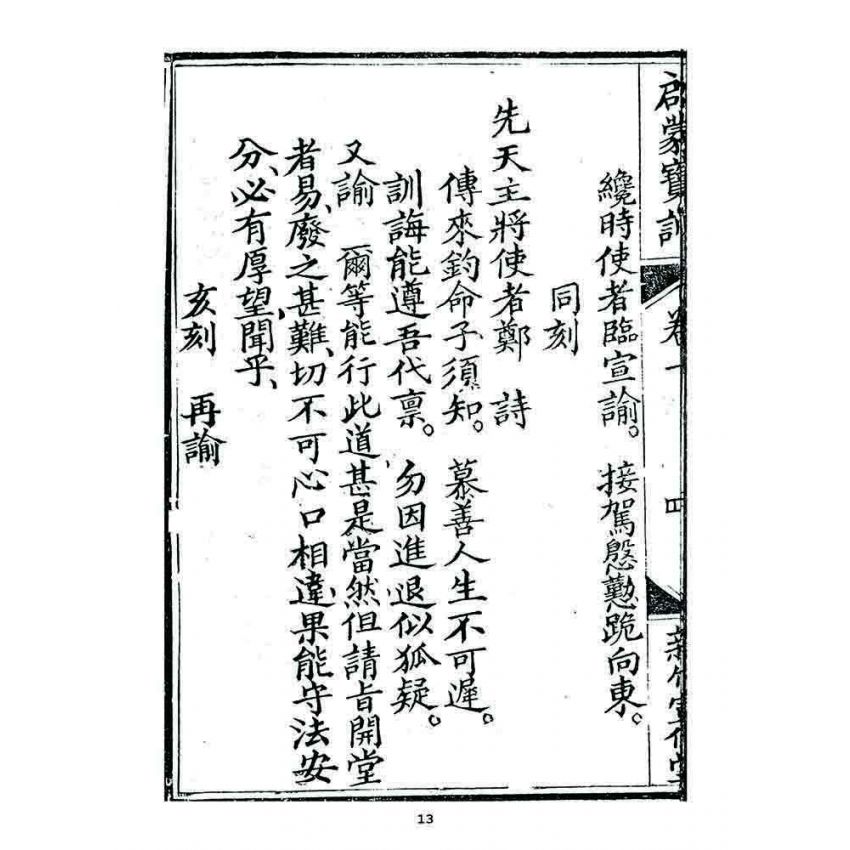 啟蒙寶訓　卷一　四
纔時使者臨宣諭。　接駕慇懃跪向東。
同刻
先天主將使者鄭　詩
傳來鈞命子須知。　慕善人生不可遲。
訓誨能遵吾代稟。　勿因進退似狐疑。
又諭　爾等能行此道、甚是當然、但請旨開堂
者易、廢之甚難、切不可心口相違、果能守法安
分、必有厚望、聞乎、
亥刻　再諭
13